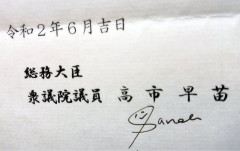 令和2年6月吉日
総務大臣
衆議院議員 高市早苗
Sanae